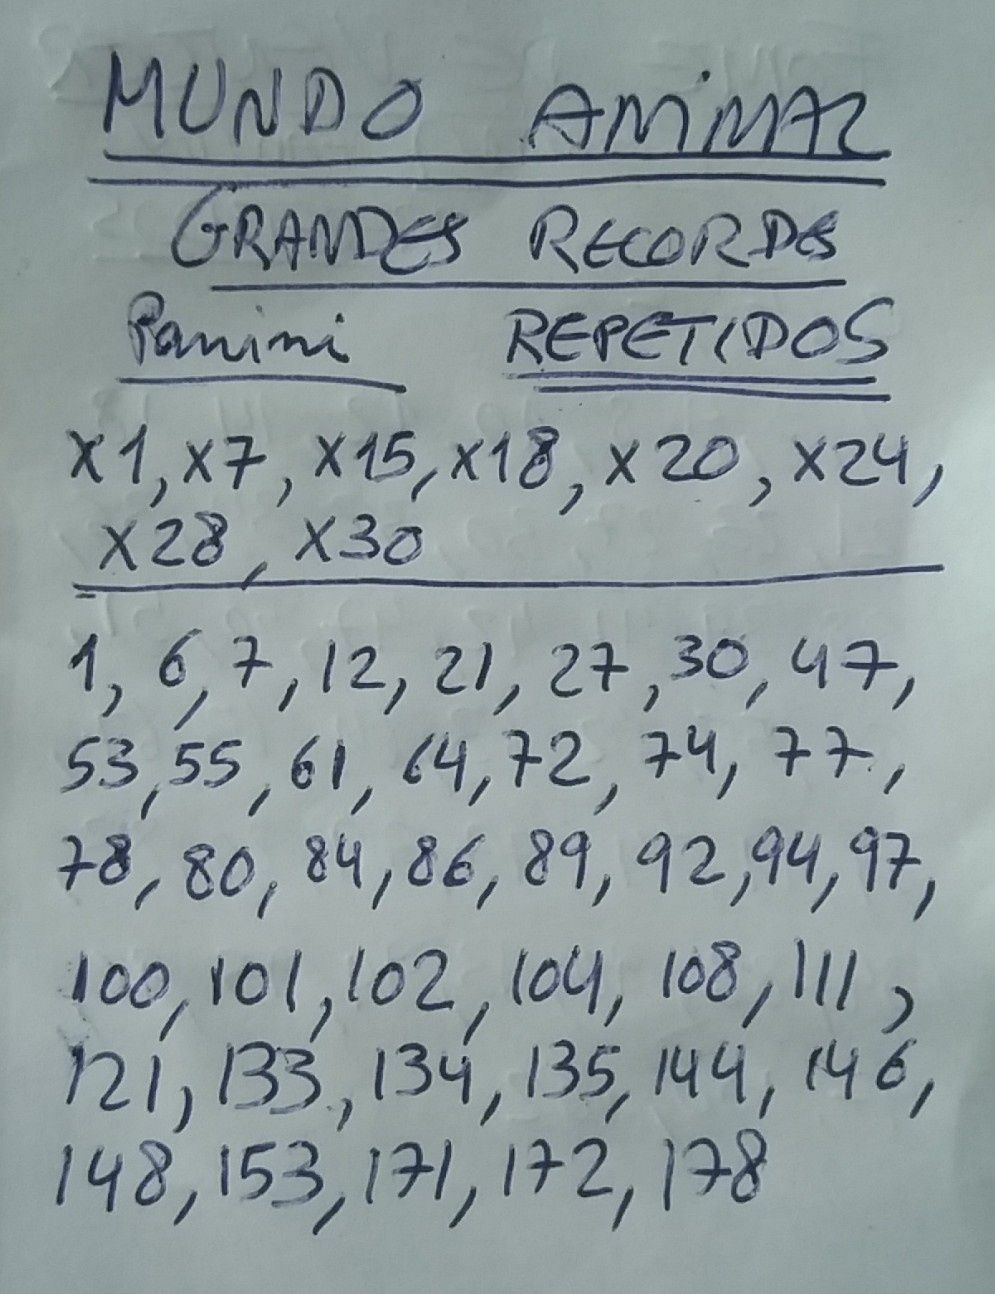 MUNDO ANiMAL
GRANDES RECORDES
Panini REPETIDOS
X1, X7, X15, X18, X20, X24,
X28, X30
1, 6, 7, 12, 21, 27, 30, 47,
53, 55, 61, 64, 72, 74, 77,
78, 80, 84, 86, 89, 92, 94, 97,
100, 101, 102, 104, 108, 111,
121, 133, 134, 135, 144, 146,
148, 153, 171, 172, 178